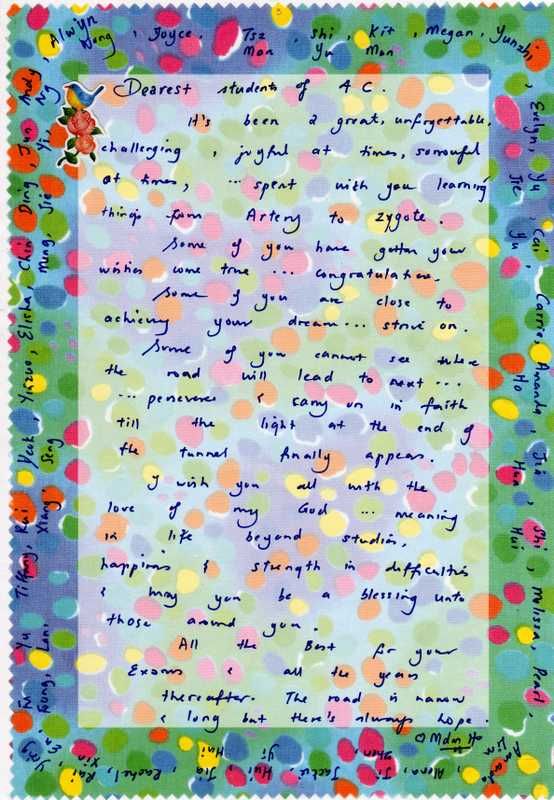 Dearest students of AC.
It's been a great, unforgettable,
challenging, joyful at times, sorrowful
at times, ... spent with you learning
things from Artery to zygote.
Some of you have gotten your
wishes come true ... congratulations.
Some of you are close to
achieving your dream... strive on.
Some of you cannot see where
the road will lead to next ....
... persevere & carry on in faith
till the light at the end of
the tunnel finally appears.
I wish you all with the
love of my God ... meaning
in life beyond studies,
happiness & strength in difficulties
& may you be a blessing unto
those around you.
All the Best for your
Exams & all the years
thereafter. The road is narrow
& long but there's always hope.
Alwyn Wong, Joyce, Tsz Man, Shi Yu, Kit Man, Megan, Yunzhi,
Evelyn, Yu Jie, Cai Yu, Carrie, Amanda Ho, Jia Hua, Shi Hui, Melissa, Pearl,
Amanda Lim
Alena, Jia Shen, Jactta, Hui Yi, Jia Hui, Rachel, Kai Xin
Yu, Tiffany, Kai Xiang, Yeok Seng, Yuzuo, Elisha, Chin Ming, Ding Jie, Jun Yi, Andy Ng